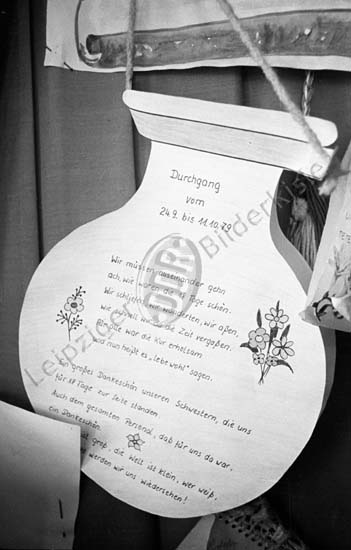 Durchgang
vom
24.9. bis 11.10.79
Wir müssen auseinander gehn
ach, wie waren die 18 Tage schön.
Wir schliefen, wir wanderten, wir aßen,
wie schnell wir da die Zeit vergaßen.
Für alle war die Kur erholsam
und nun heißt es „lebe wohl“ sagen.
Ein großes Dankeschön unseren Schwestern, die uns
für 18 Tage zur Seite standen
Auch dem gesamten Personal, daß für uns da war,
ein Dankeschön.
groß, die Welt ist klein, wer weiß,
werden wir uns wiedersehen!
Leipziger Bilderkiste
DDR